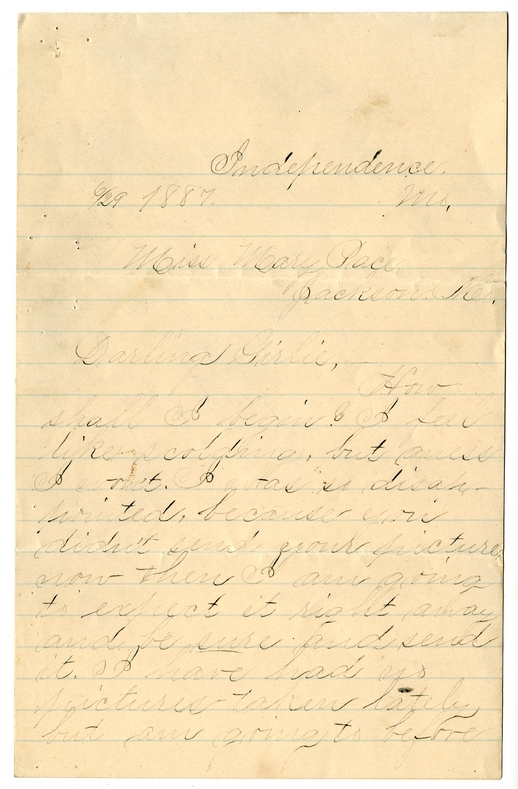 Independence.
6/29 1887. Mo.
Miss Mary Pace
Jackson. Mo.
Darling Girlie,
How
shall I begin? I feel
like scolding, but guess
I wont. I was so disap-
pointed, because you
didn't send your picture,
now then I am going
to expect it right away
and be sure and send
it. I have had no
pictures taken lately,
but am going to before